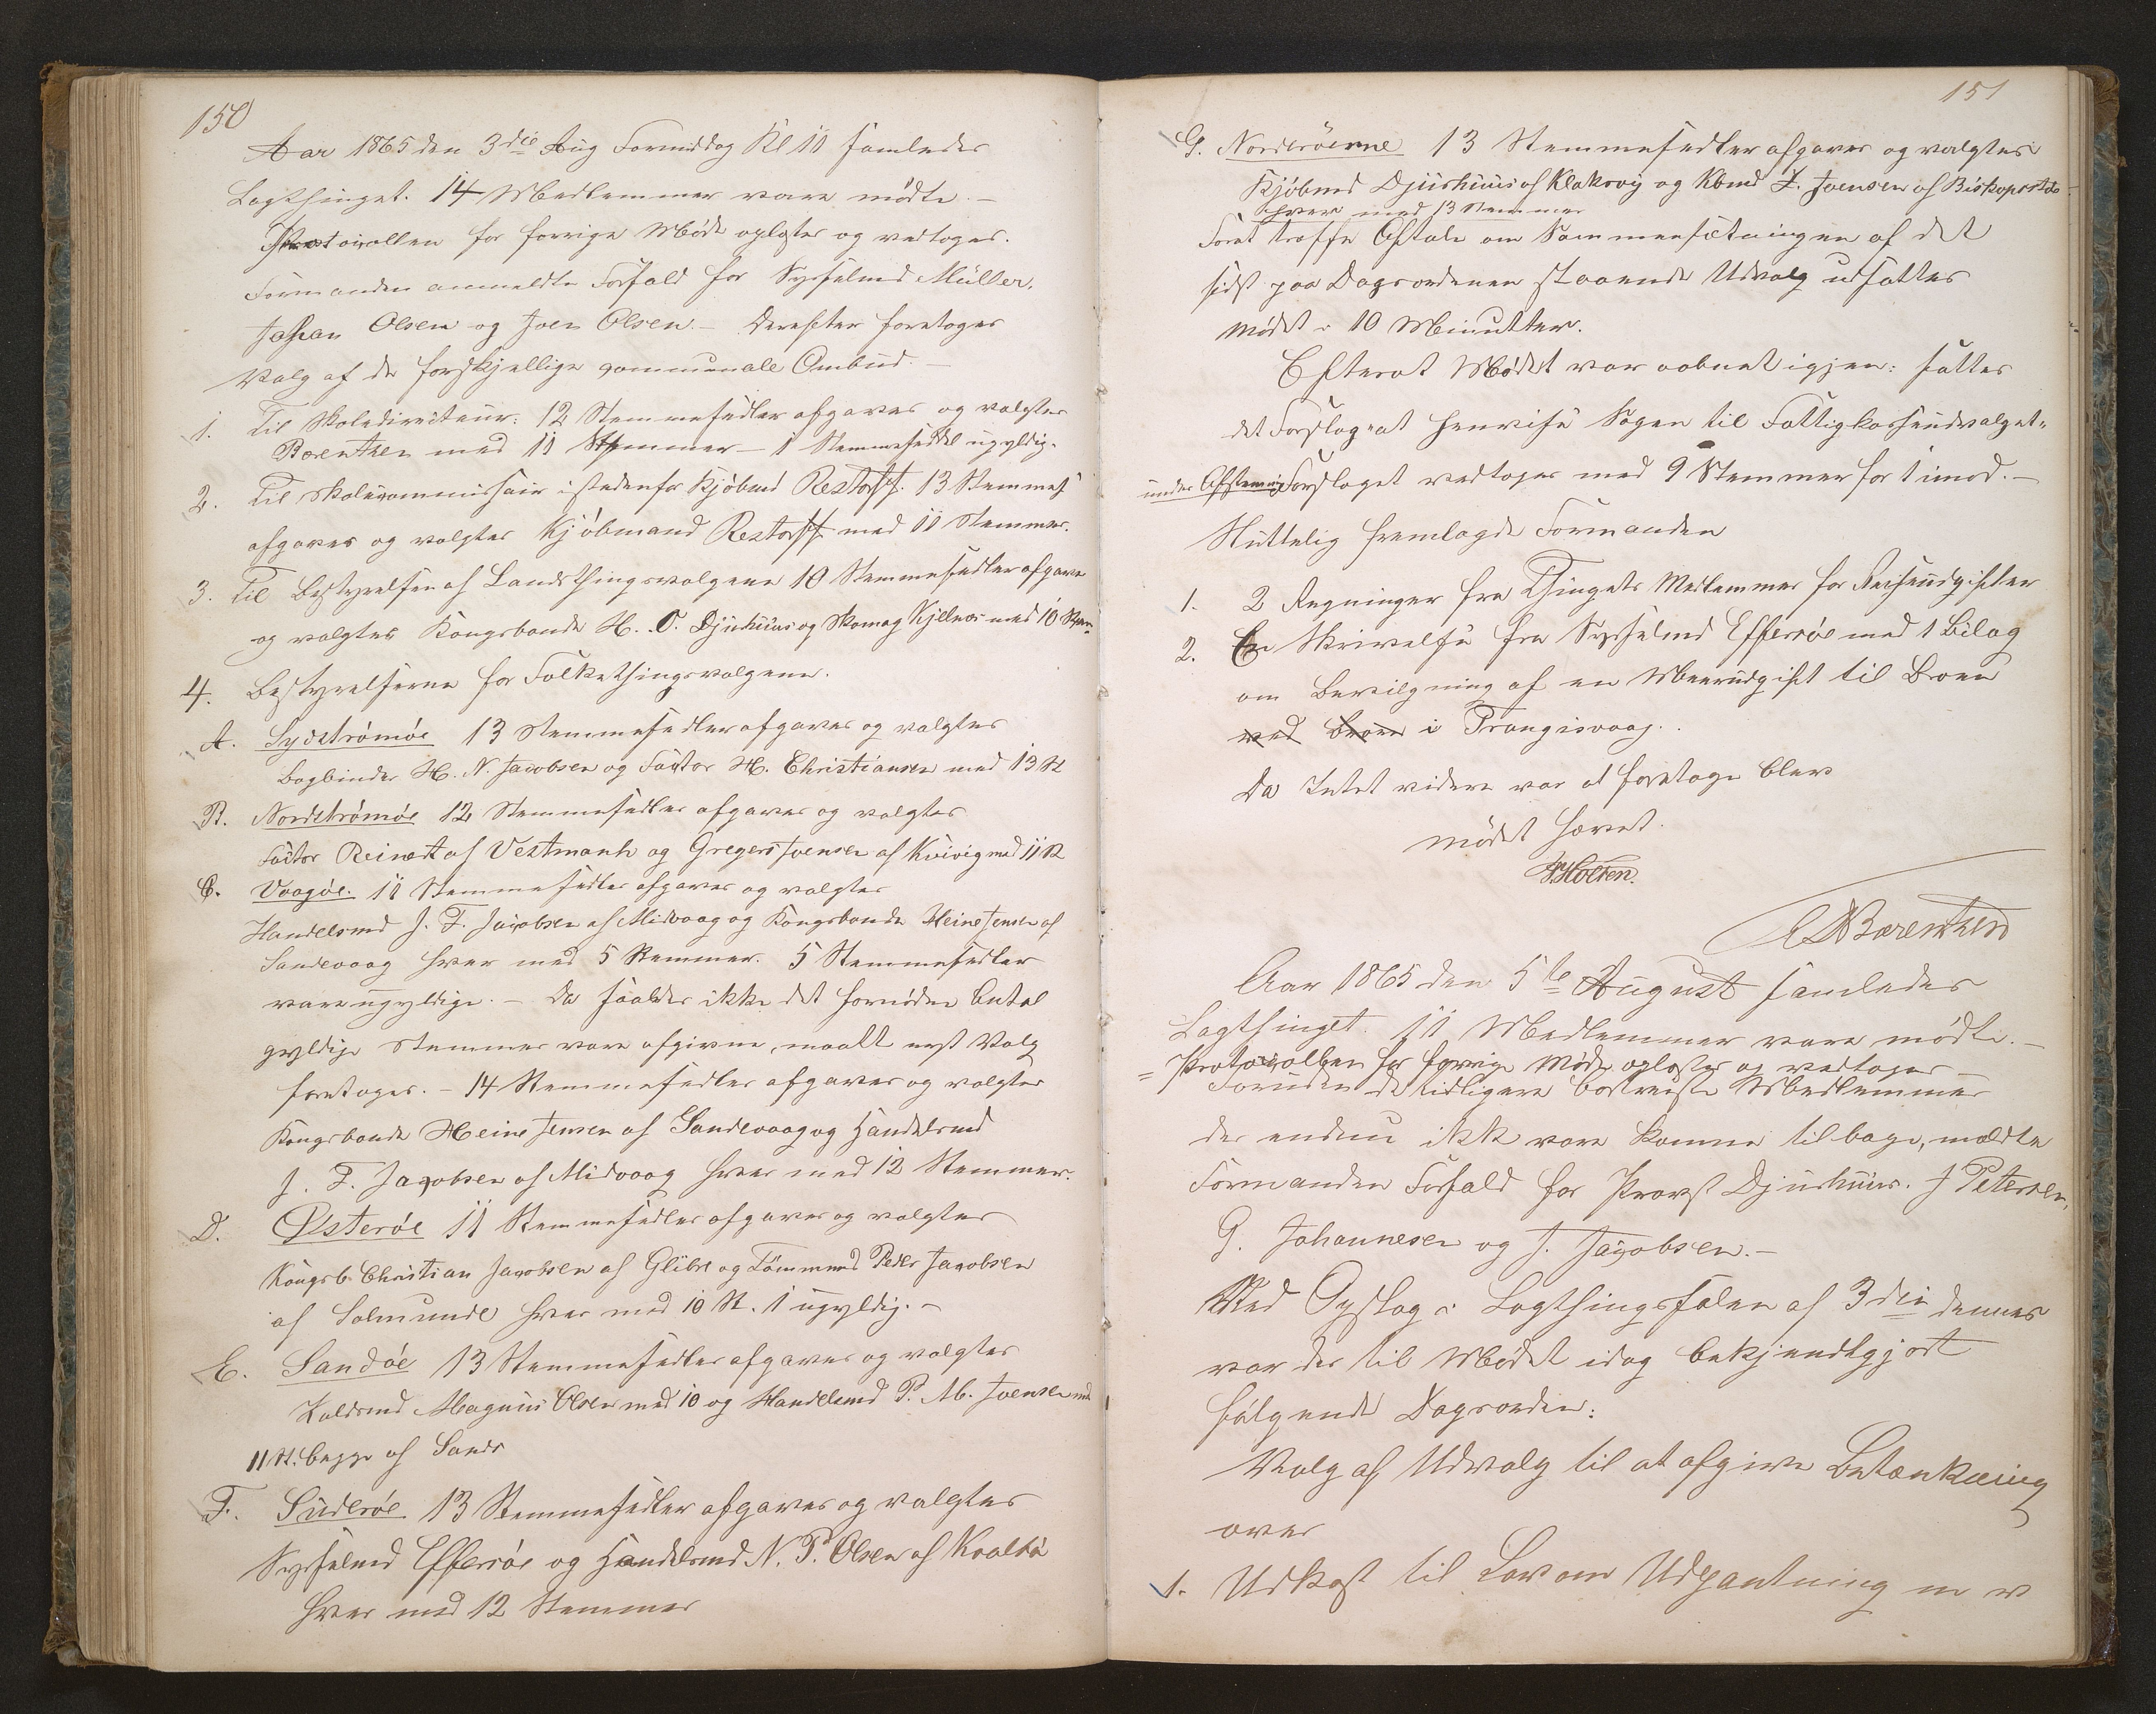 150
Aar 1865 den 3die Aug Formiddag Kl 11 samledes
Lagthinget. 14 Medlemmer vare mødte. –
Protocollen for forrige Møde oplæstes og vedtoges.
Formanden anmeldte Forfald for Sysselmd Müller,
Johan Olsen og Joen Olsen. – Derefter foretoges
Valg af de forskjellige communale Ombud. –
1. Til Skoledirecteur: 12 Stemmesedler afgaves og valgtes
Bærentsen med 11 Stemmer – 1 Stemmeseddel ugyldig.
2. Til Skolecommissair istedenfor Kjøbmd Restorff. 13 Stemmes
afgaves og valgtes Kjøbmand Restorff med 11 Stemmer.
3. Til Bestyrelsen af Landsthingsvalgene 10 Stemmesedler afgave
og valgtes Kongsbonde H. O. Djurhuus og Skomag Kjelnæs med 10 Stem
4. Bestyrelserne for Folkethingsvalgene.
A. Sydstrømøe 13 Stemmesedler afgaves og valgtes
Bogbinder H. N. Jacobsen og Factor H. Christiansen med 13 St
B. Nordstrømøe 12 Stemmesedler afgaves og valgtes
Factor Reinert af Vestmanh og Gregers Joensen af Kvivig med 11 St
C. Vaagøe. 11 Stemmesedler afgaves og valgtes
Handelsmd J. F. Jacobsen af Midvaag og Kongsbonde Heine Jensen af
Sandevaag hver med 5 Stemmer. 5 Stemmesedler
vare ugyldige. – Da saaledes ikke det fornødne Antal
gyldige Stemmer vare afgivne, maatte nyt Valg
foretages. – 14 Stemmesedler afgaves og valgtes
Kongsbonde Heine Jensen af Sandevaag og Handelsmd
J. F. Jacobsen af Midvaag hver med 12 Stemmer.
D. Østerøe 11 Stemmesedler afgaves og valgtes
Kongsb. Christian Jacobsen af Glibre og Tømmermd Peder Jacobsen
af Solmunde hver med 10 St. 1 ugyldig. –
E. Sandøe 13 Stemmesedler afgaves og valgtes
Magnus Olsen med 10 og Handelsmd P. M. Joensen med
11 St. begge af Sand
F. Suderøe 13 Stemmesedler afgaves og valgtes
Sysselmd Effersøe og Handelsmd N. P. Olsen af Kvalbø
hver med 12 Stemmer
151
G. Norderøerne 13 Stemmesedler afgaves og valgtes
Kjøbmd Djurhuus af Klaksvig og Kbmd Z. Joensen af Biskopsstø
hver med 13 Stemmer
Forat træffe Aftale om Sammensætningen af det
sidst paa Dagsordenen staaende Udvalg udsattes
Mødet i 10 Minutter.
Efterat Mødet var aabnet igjen: sattes
det Forslag "at henvise Sagen til Fattigkasseudvalget"
under Afstemning Forslaget vedtoges med 9 Stemmer for 1 imod. –
Sluttelig fremlagde Formanden
1. 2 Regninger fra Thingets Medlemmer for Reiseudgifter
2. En Skrivelse fra Sysselmd Effersøe med 1 Bilag
om Bevilgning af en Meerudgift til Broen
ved Broen i Trangisvaag.
Da Intet videre var at foretage blev
Mødet hævet.
Holten.
Bærentsen
Aar 1865 den 5te August samledes
Lagthinget. 11 Medlemmer vare mødte. –
= Protocollen for forrige Møde oplæstes og vedtoges –
Foruden de tidligere bortreiste Medlemmer
der endnu ikke vare komne tilbage, meldte
Formanden Forfald for Provst Djurhuus. J Petersen,
G. Johannesen og J. Jacobsen. –
Ved Opslag i Lagthingssalen af 3die dennes
var der til Mødet idag bekjendtgjort
følgende Dagsorden:
Valg af Udvalg til at afgive Betænkning
over
1. Udkast til Lov om Udpantning m v